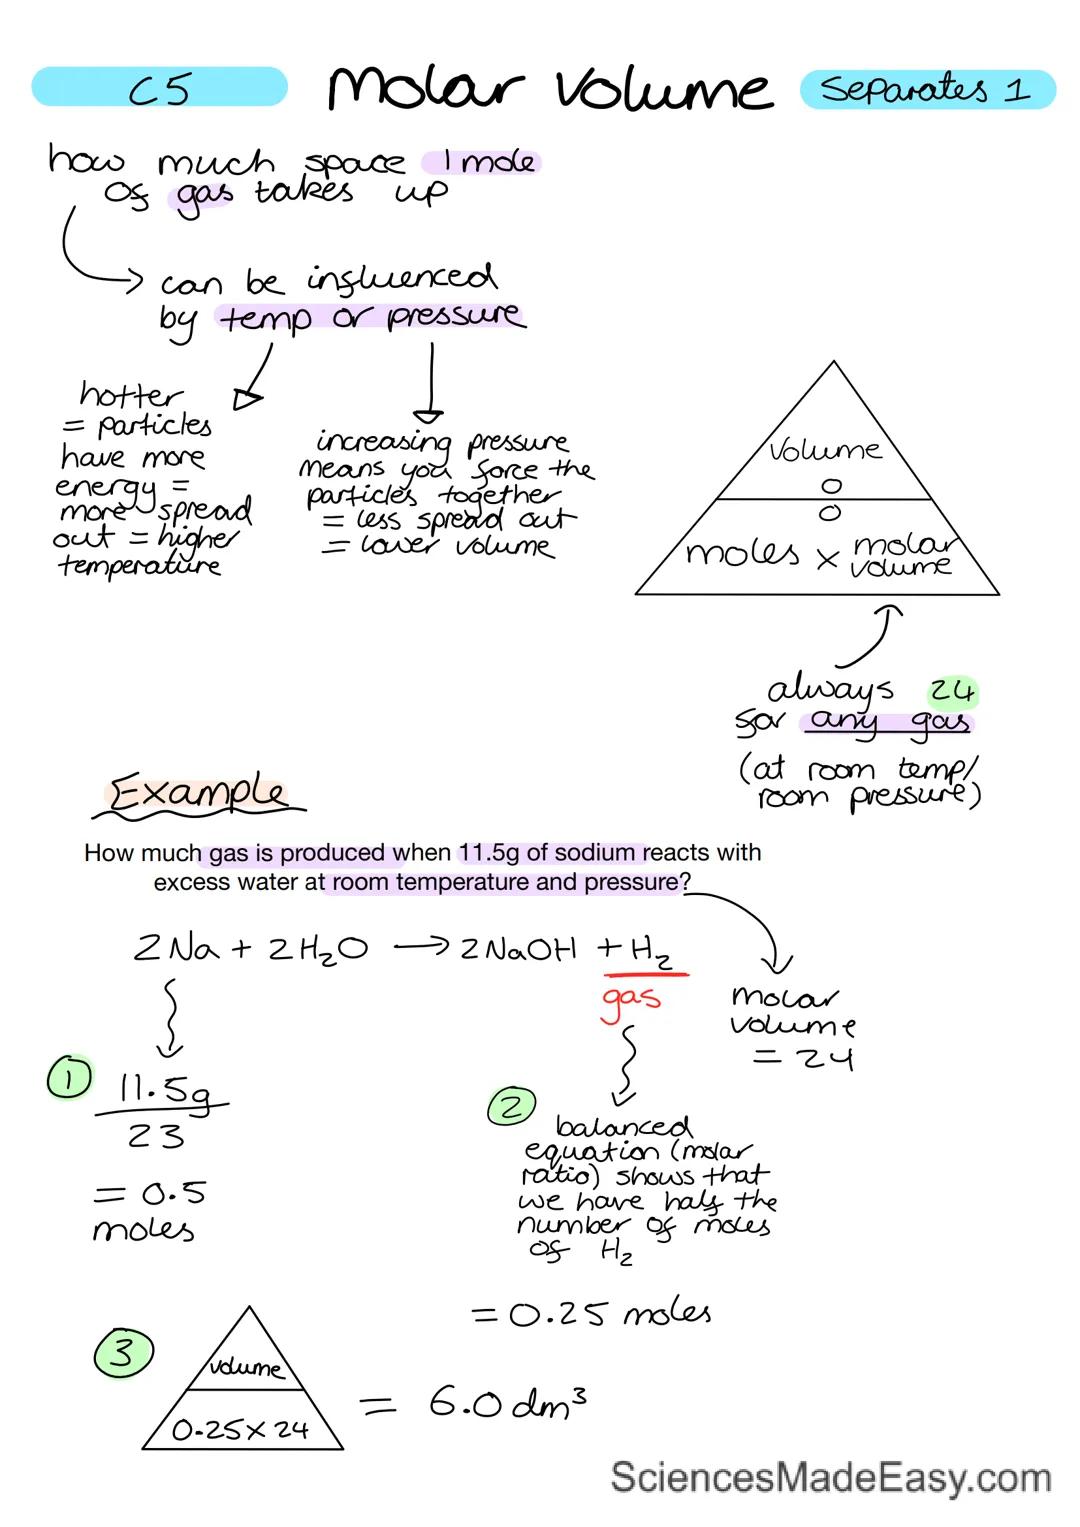 C5
Molar Volume
Separates 1
how much space 1 mole
of gas takes up
can be influenced
by temp or pressure
hotter
= particles
have more
energy =
more spread
out = higher
temperature
increasing pressure
means you force the
particles together
= less spread out
= lower volume
Volume
moles x molar
volume
always 24
for any gas
(at room temp/
room pressure)
Example
How much gas is produced when 11.5g of sodium reacts with
excess water at room temperature and pressure?
2Na + 2H₂O → 2NaOH + H₂
gas
molar
volume
= 24
1
11.5g
23
= 0.5
moles
2
balanced
equation (molar
ratio) shows that
we have half the
number of moles
of H₂
= 0.25 moles
3
volume
0.25 x 24
= 6.0 dm³
SciencesMadeEasy.com